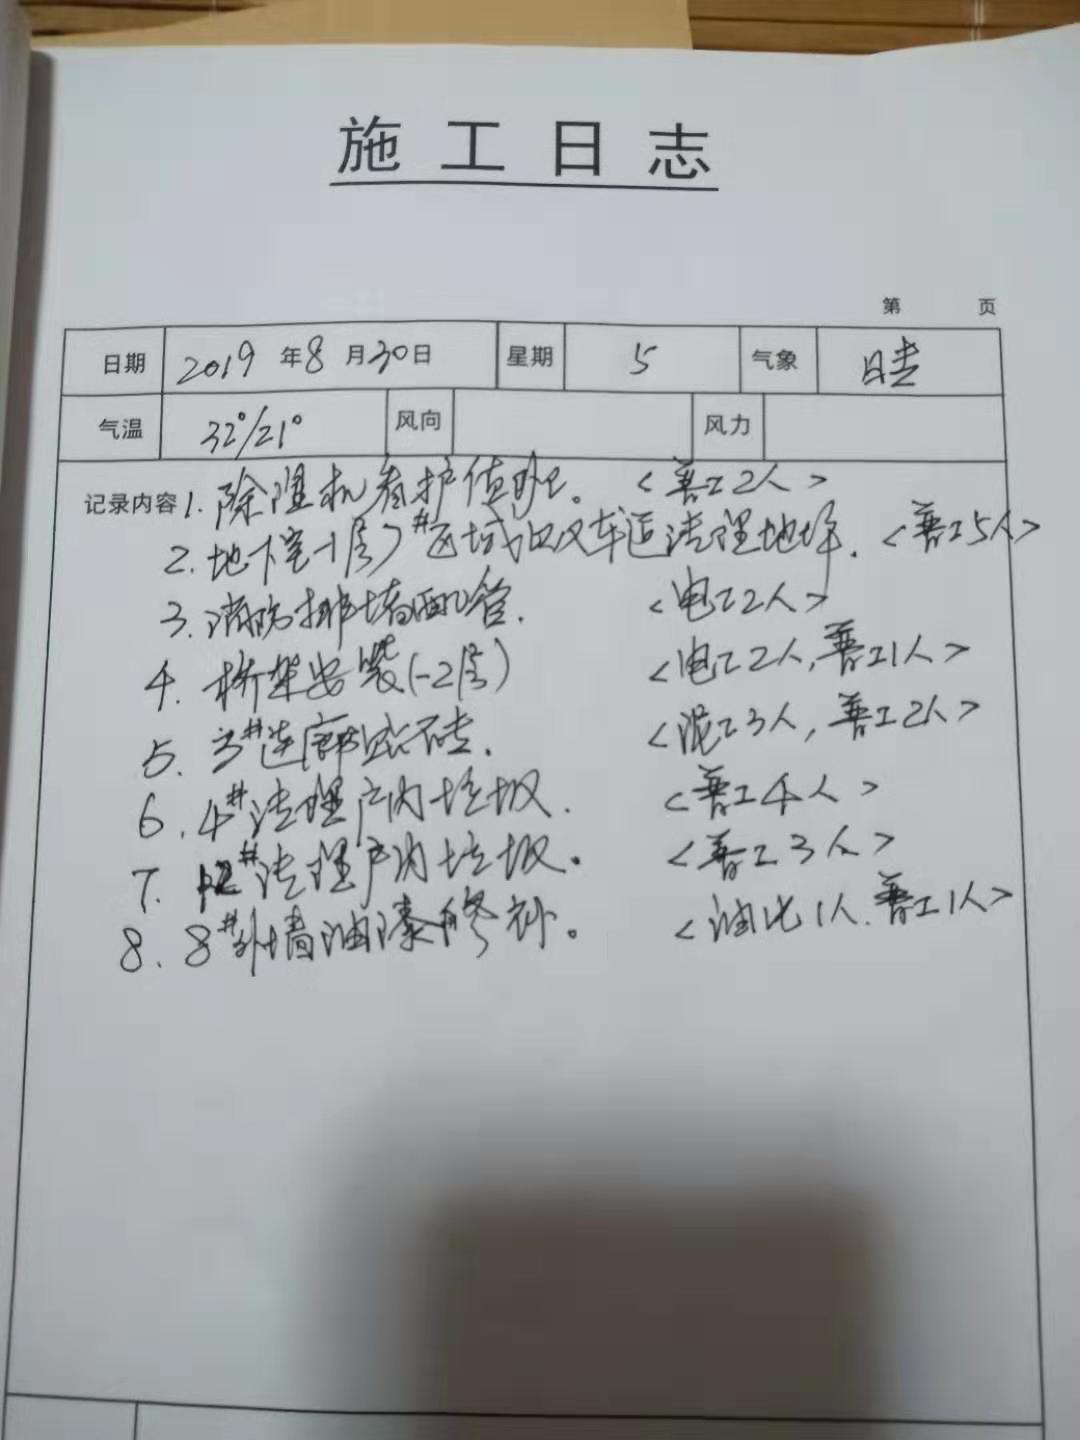 施工日志
第 页
日期 2019年8月30日 星期 5 气象 晴
气温 32°/21° 风向 风力
记录内容 1. 除湿机看护值班。 <普工2人>
2. 地下室-1层7#区域以及车道清理地坪. <普工5人>
3. 消防排墙配管. <电工2人>
4. 桥架安装(-2层) <电工2人,普工1人>
5. 3#连廊贴砖. <泥工3人,普工2人>
6. 4#清理户内垃圾. <普工4人>
7. 12#清理户内垃圾。 <普工3人>
8. 8#外墙油漆修补。 <油化1人.普工1人>